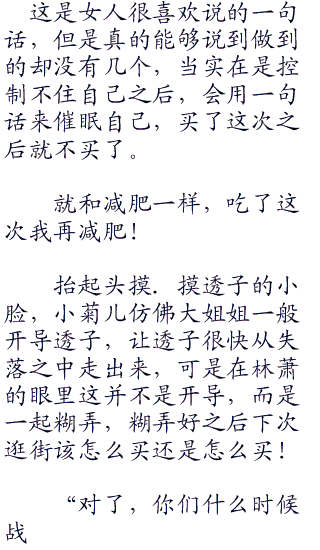 这是女人很喜欢说的一句
话，但是真的能够说到做到
的却没有几个，当实在是控
制不住自己之后，会用一句
话来催眠自己，买了这次之
后就不买了。
就和减肥一样，吃了这
次我再减肥！
抬起头摸．摸透子的小
脸，小菊儿仿佛大姐姐一般
开导透子，让透子很快从失
落之中走出来，可是在林萧
的眼里这并不是开导，而是
一起糊弄，糊弄好之后下次
逛街该怎么买还是怎么买！
“对了，你们什么时候
战